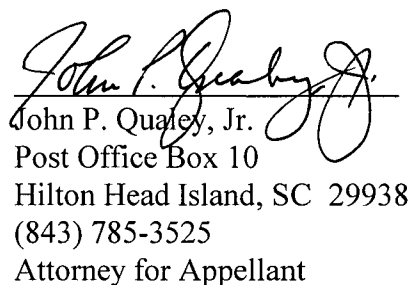 John P. Qualey, Jr.
John P. Qualey, Jr.
Post Office Box 10
Hilton Head Island, SC 29938
(843) 785-3525
Attorney for Appellant